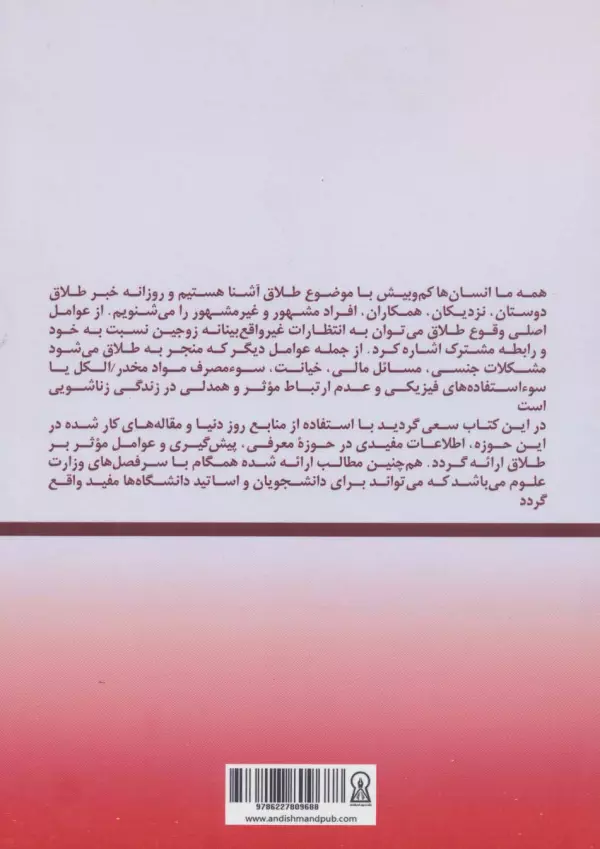 همه ما انسان‌ها کم‌وبیش با موضوع طلاق آشنا هستیم و روزانه خبر طلاق
دوستان، نزدیکان، همکاران، افراد مشهور و غیرمشهور را می‌شنویم. از عوامل
اصلی وقوع طلاق می‌توان به انتظارات غیرواقع‌بینانه زوجین نسبت به خود
و رابطه مشترک اشاره کرد. از جمله عوامل دیگر که منجر به طلاق می‌شود
مشکلات جنسی، مسائل مالی، خیانت، سوءمصرف مواد مخدر/الکل یا
سوءاستفاده‌های فیزیکی و عدم ارتباط مؤثر و همدلی در زندگی زناشویی
است
در این کتاب سعی گردید با استفاده از منابع روز دنیا و مقاله‌های کار شده در
این حوزه، اطلاعات مفیدی در حوزهٔ معرفی، پیش‌گیری و عوامل مؤثر بر
طلاق ارائه گردد. هم‌چنین مطالب ارائه شده همگام با سرفصل‌های وزارت
علوم می‌باشد که می‌تواند برای دانشجویان و اساتید دانشگاه‌ها مفید واقع
گردد
9786227809688
www.andishmandpub.com